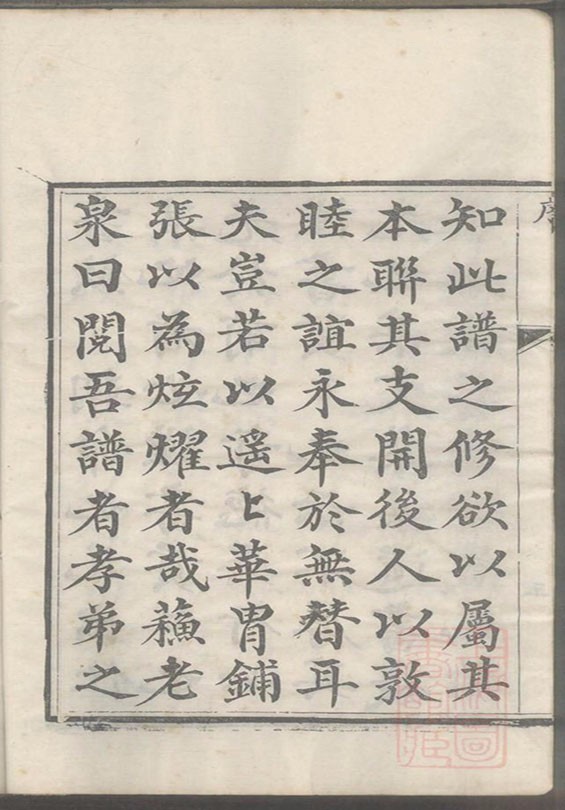 知此譜之修欲以屬其
本聯其支開後人以敦
睦之誼永奉於無替耳
夫豈若以遥上華胄鋪
張以為炫耀者哉蘓老
泉曰閱吾譜者孝弟之